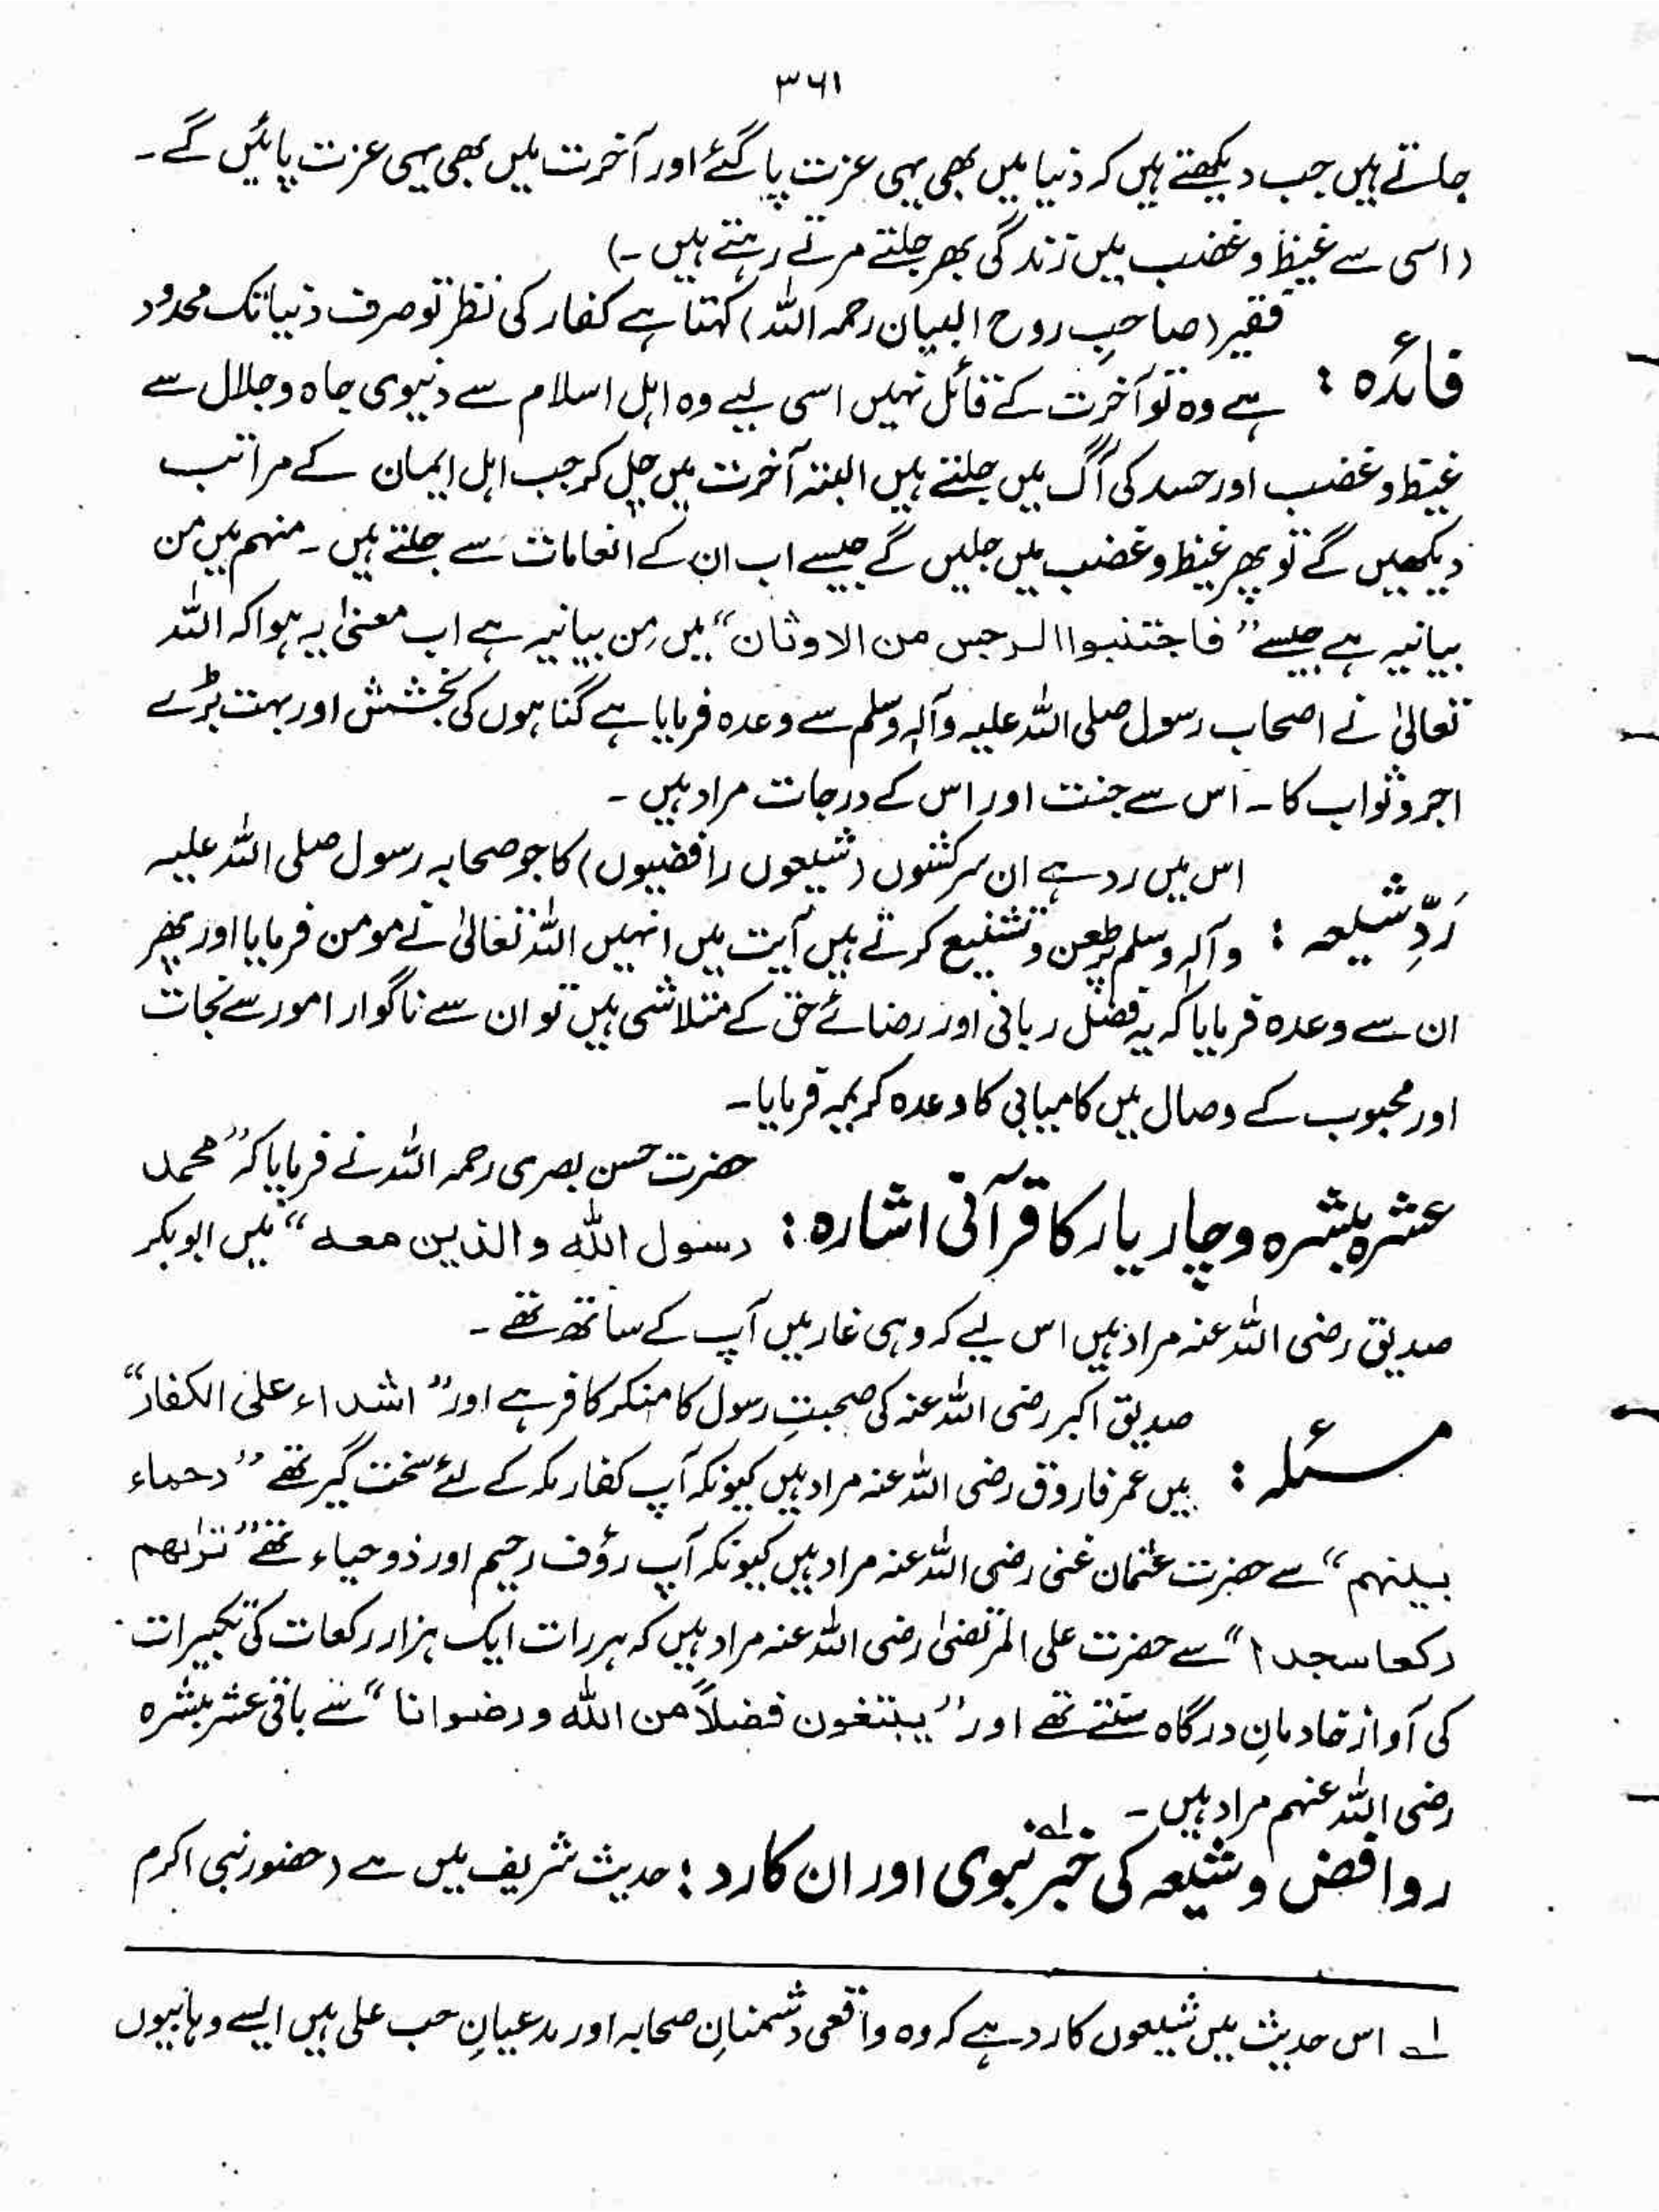 ۳۶۱
جلتے ہیں جب دیکھتے ہیں کہ دنیا میں بھی یہی عزت پا گئے اور آخرت میں بھی یہی عزت پائیں گے ۔
(اسی سے غیظ و غضب میں زندگی بھر جلتے مرتے رہتے ہیں ۔)
فقیر (صاحبِ روح البیان رحمہ اللہ) کہتا ہے کفار کی نظر تو صرف دنیا تک محدود
فائدہ : ہے وہ تو آخرت کے قائل نہیں اسی لیے وہ اہل اسلام سے دنیوی جاہ و جلال سے
غیظ و غضب اور حسد کی آگ میں جلتے ہیں البتہ آخرت میں چل کر جب اہل ایمان کے مراتب
دیکھیں گے تو پھر غیظ و غضب میں جلیں گے جیسے اب ان کے انعامات سے جلتے ہیں ۔ منہم میں من
بیانیہ ہے جیسے ”فاجتنبوا الرجس من الاوثان“ میں مِن بیانیہ ہے اب معنیٰ یہ ہوا کہ اللہ
تعالیٰ نے اصحاب رسول صلی اللہ علیہ وآلہٖ وسلم سے وعدہ فرمایا ہے گناہوں کی بخشش اور بہت بڑے
اجر و ثواب کا ۔ اس سے جنت اور اس کے درجات مراد ہیں ۔
اس میں رد ہے ان سرکشوں (شیعوں رافضیوں) کا جو صحابہ رسول صلی اللہ علیہ
رَدِّ شیعہ : وآلہٖ وسلم پر طعن و تشنیع کرتے ہیں آیت میں انہیں اللہ تعالیٰ نے مومن فرمایا اور پھر
ان سے وعدہ فرمایا کہ یہ فضل ربانی اور رضائے حق کے متلاشی ہیں تو ان سے ناگوار امور سے نجات
اور محبوب کے وصال میں کامیابی کا وعدہ کریمہ فرمایا ۔
حضرت حسن بصری رحمہ اللہ نے فرمایا کہ ”محمد
عشرہ مبشرہ و چار یار کا قرآنی اشارہ : رسول اللہ والذین معہ“ میں ابوبکر
صدیق رضی اللہ عنہ مراد ہیں اس لیے کہ وہی غار میں آپ کے ساتھ تھے ۔
صدیق اکبر رضی اللہ عنہ کی صحبتِ رسول کا منکر کافر ہے اور ”اشداء علی الکفار“
مسئلہ : میں عمر فاروق رضی اللہ عنہ مراد ہیں کیونکہ آپ کفار مکہ کے لئے سخت گیر تھے ”رحماء
بینہم“ سے حضرت عثمان غنی رضی اللہ عنہ مراد ہیں کیونکہ آپ رؤف رحیم اور ذو حیاء تھے ”تراٰھم
رکعا سجدا“ سے حضرت علی المرتضیٰ رضی اللہ عنہ مراد ہیں کہ ہر رات ایک ہزار رکعات کی تکبیرات
کی آواز خادمانِ درگاہ سنتے تھے اور ”یبتغون فضلاً من اللہ ورضوانا“ سے باقی عشرہ مبشرہ
رضی اللہ عنہم مراد ہیں ۔
روافض و شیعہ کی خبر نبوی اور ان کا رد : ؎۱ حدیث شریف میں ہے (حضور نبی اکرم
؎۱ اس حدیث میں شیعوں کا رد ہے کہ وہ واقعی دشمنانِ صحابہ اور مدعیانِ حب علی ہیں ایسے وہابیوں